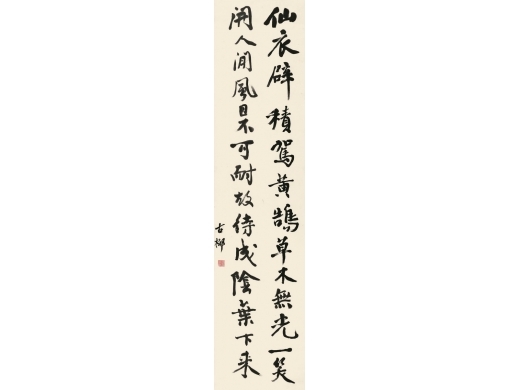 仙衣辟積駕黃鵠草木無光一笑
開人間風日不可耐故待成陰葉下來
古